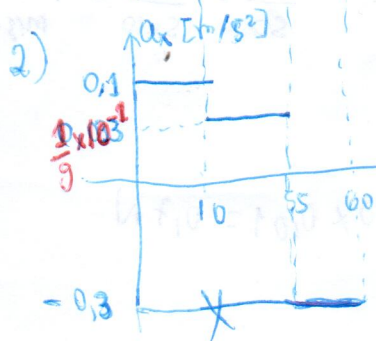 2) aₓ [m/s²]
0,1
1/9 x10⁻¹
10 55 60
- 0,3